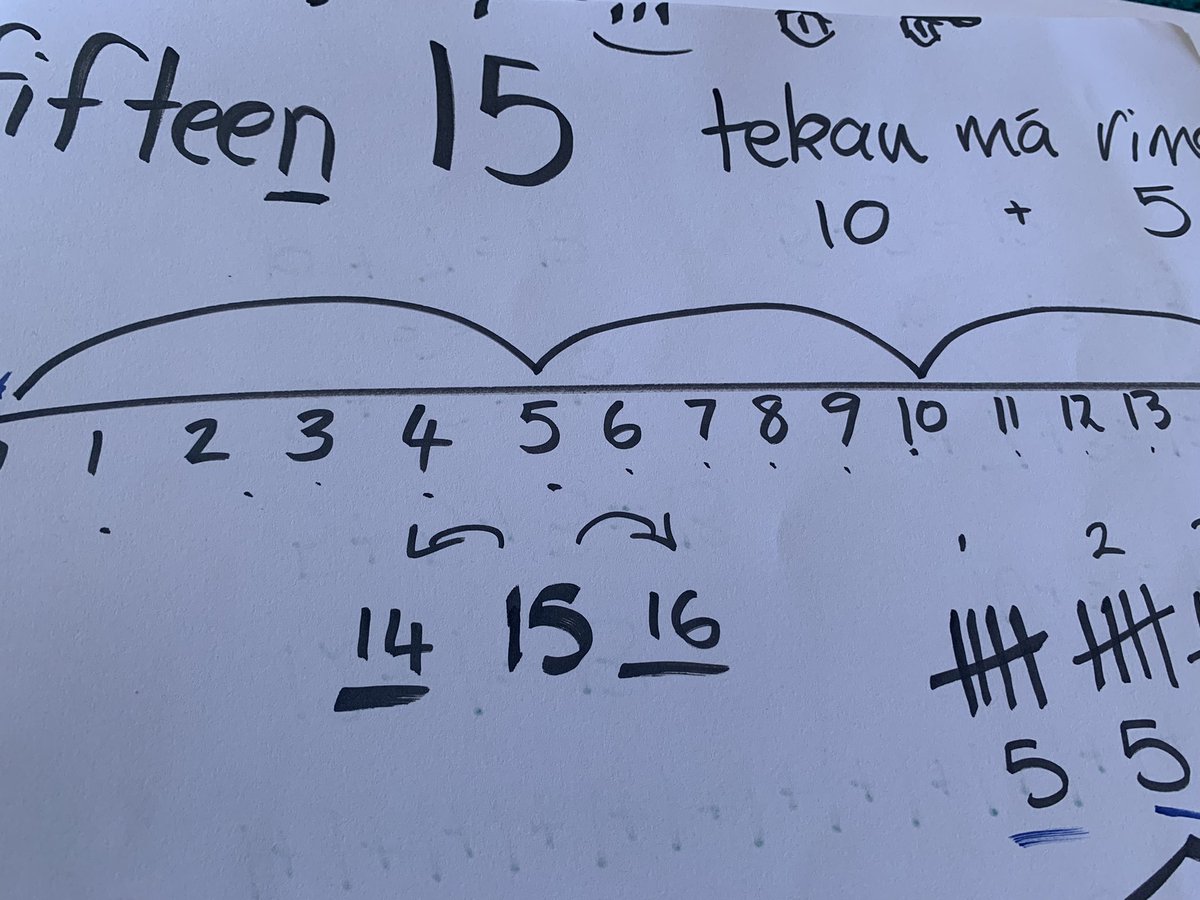 fifteen 15 tekau má rima
10 + 5
1 2 3 4 5 6 7 8 9 10 11 12 13
1 2
14 15 16
5 5